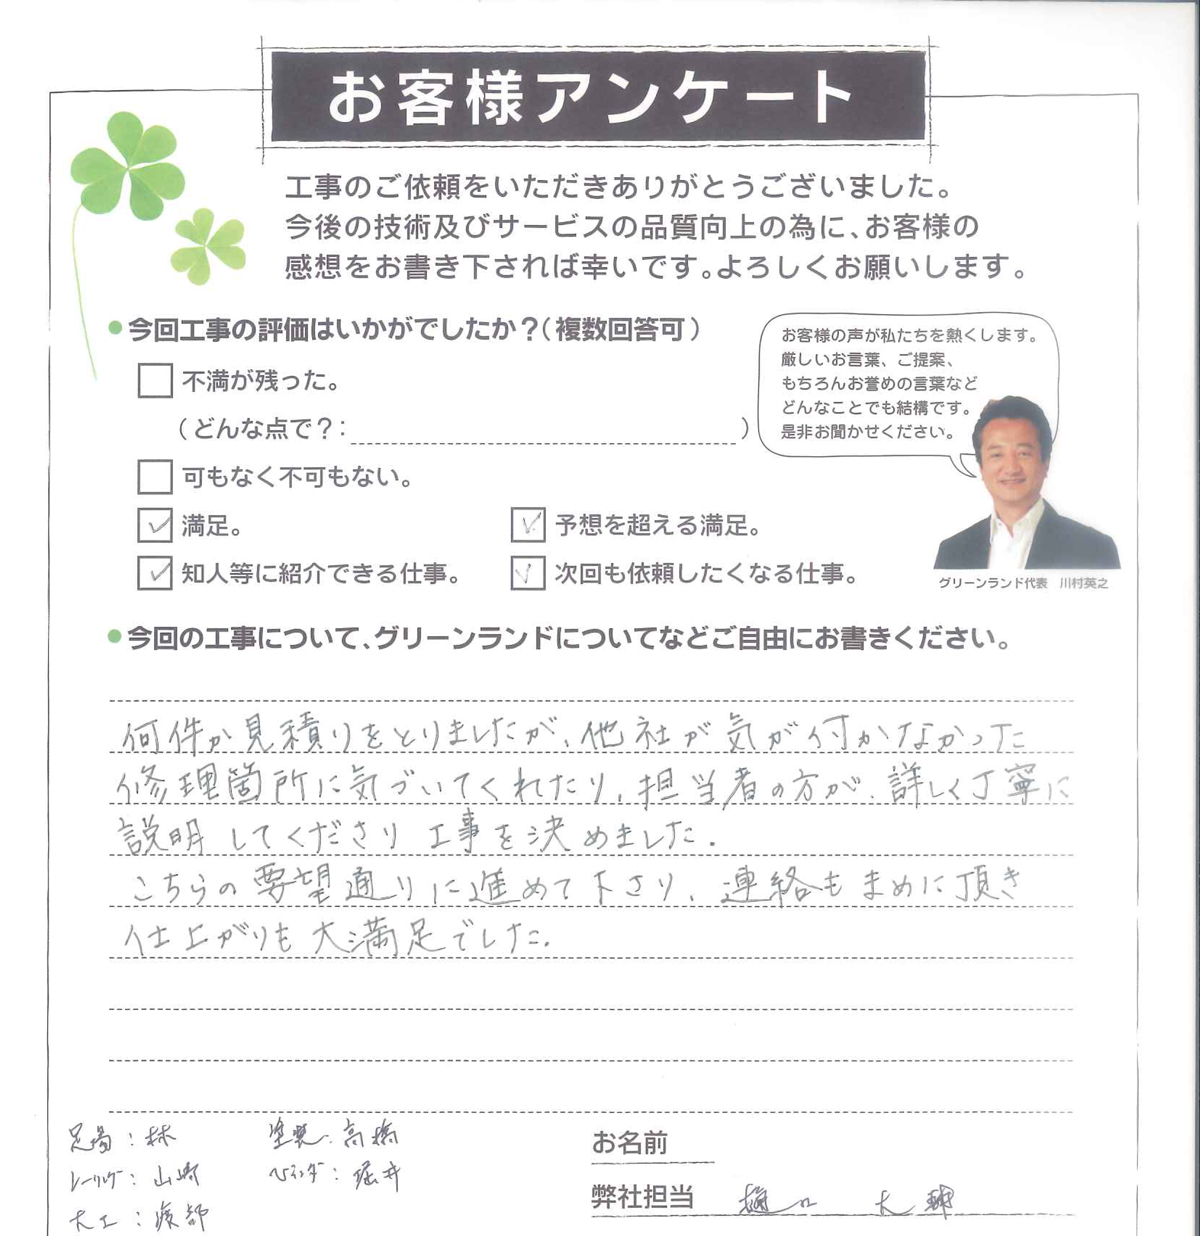 お客様アンケート
工事のご依頼をいただきありがとうございました。
今後の技術及びサービスの品質向上の為に、お客様の
感想をお書き下されば幸いです。よろしくお願いします。
今回工事の評価はいかがでしたか？（複数回答可）
不満が残った。
（どんな点で？： ）
可もなく不可もない。
満足。
予想を超える満足。
知人等に紹介できる仕事。
次回も依頼したくなる仕事。
お客様の声が私たちを熱くします。
厳しいお言葉、ご提案、
もちろんお誉めの言葉など
どんなことでも結構です。
是非お聞かせください。
グリーンランド代表 川村英之
今回の工事について、グリーンランドについてなどご自由にお書きください。
何件か見積りをとりましたが、他社が気が付かなかった
修理箇所に気づいてくれたり、担当者の方が、詳しく丁寧に
説明してくださり工事を決めました。
こちらの要望通りに進めて下さり、連絡もまめに頂き
仕上がりも大満足でした。
足場：林
塗装：高橋
シーリング：山崎
ベランダ：堀井
大工：渡部
お名前
弊社担当 樋口 大輔